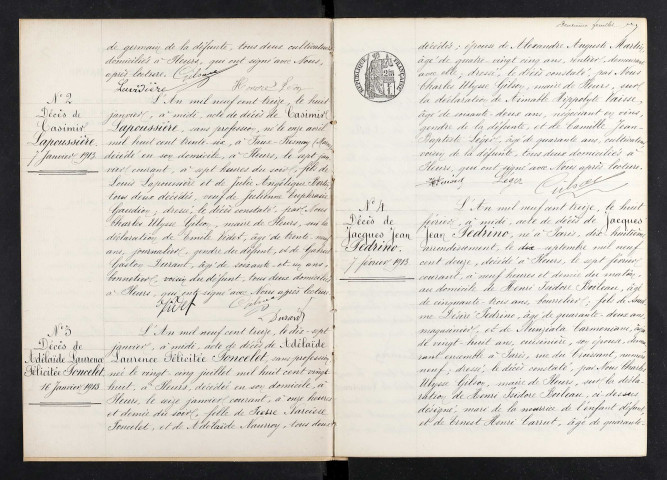 de germain de la défunte, tous deux cultivateurs
domiciliés à Fleurs, qui ont signé avec Nous
après lecture.
N° 2
Décès de
Casimir
Lapoussière
7 Janvier 1913.
L'An mil neuf cent treize, le huit
janvier, à midi, acte de décès de Casimir
Lapoussière, sans profession, né le onze avril
mil huit cent trente-six, à
décédé en son domicile, à Fleurs, le sept jan-
vier courant, à sept heures du soir, fils de
Louis Lapoussière et de Julie Angélique
tous deux décédés, veuf de Julienne Euphrasie
Gaudion, dressé, le décès constaté, par Nous
Charles Ulysse Gilson, maire de Fleurs, sur la
déclaration de Emile Videt, âgé de trente-neuf
ans, journalier, gendre du défunt, et de
Gaston âgé de soixante et un ans,
bonnetier, voisin du défunt, tous deux domiciliés
à Fleurs, qui ont signé avec Nous après lecture.
N° 3
Décès de
Adélaïde Laurence
Félicitée Poncelet
16 Janvier 1913
L'An mil neuf cent treize, le dix-sept
janvier, à midi, acte de décès de Adélaïde
Laurence Félicitée Poncelet, sans profession,
née le vingt-cinq juillet mil huit cent vingt
huit, à Fleurs, décédée en son domicile, à
Fleurs, le seize janvier courant, à onze heures
et demie du soir, fille de Pierre Narcisse
Poncelet, et de Adélaïde Naurroy, tous deux
RÉPUBLIQUE FRANÇAISE
décédés; épouse de Alexandre Auguste Martin,
âgé de quatre-vingt cinq ans, rentier, demeurant
avec elle, dressé, le décès constaté, par Nous
Charles Ulysse Gilson, maire de Fleurs, sur
la déclaration de Armable Hippolyte
âgé de soixante-deux ans, négociant en vins,
gendre de la défunte, et de Camille Jean-
Baptiste Léger, âgé de quarante ans, cultivateur,
voisin de la défunte, tous deux domiciliés à
Fleurs, qui ont signé avec Nous après lecture.
Léger
N° 4
Décès de
Jacques Jean
Pedrino
7 février 1913
L'An mil neuf cent treize, le huit
février, à midi, acte de décès de Jacques
Jean Pedrino, né à Paris, dix-huitième
arrondissement, le dix septembre mil neuf
cent douze, décédé à Fleurs, le sept février
courant, à neuf heures et demie du matin,
au domicile de Henri Isidore Boileau, âgé
de cinquante-trois ans, bourrelier, fils de
Pedrino, âgé de quarante-deux ans,
magasinier, et de Nunziata âgée
de vingt-huit ans, cuisinière, son épouse, demeu-
rant ensemble à Paris, rue du Croissant, numéro
neuf, dressé, le décès constaté, par Nous Charles
Ulysse Gilson, maire de Fleurs, sur la décla-
ration de Henri Isidore Boileau, ci-dessus
désigné, mari de la nourrice de l'enfant défunt,
et de Ernest Henri Carrut, âgé de quarante-